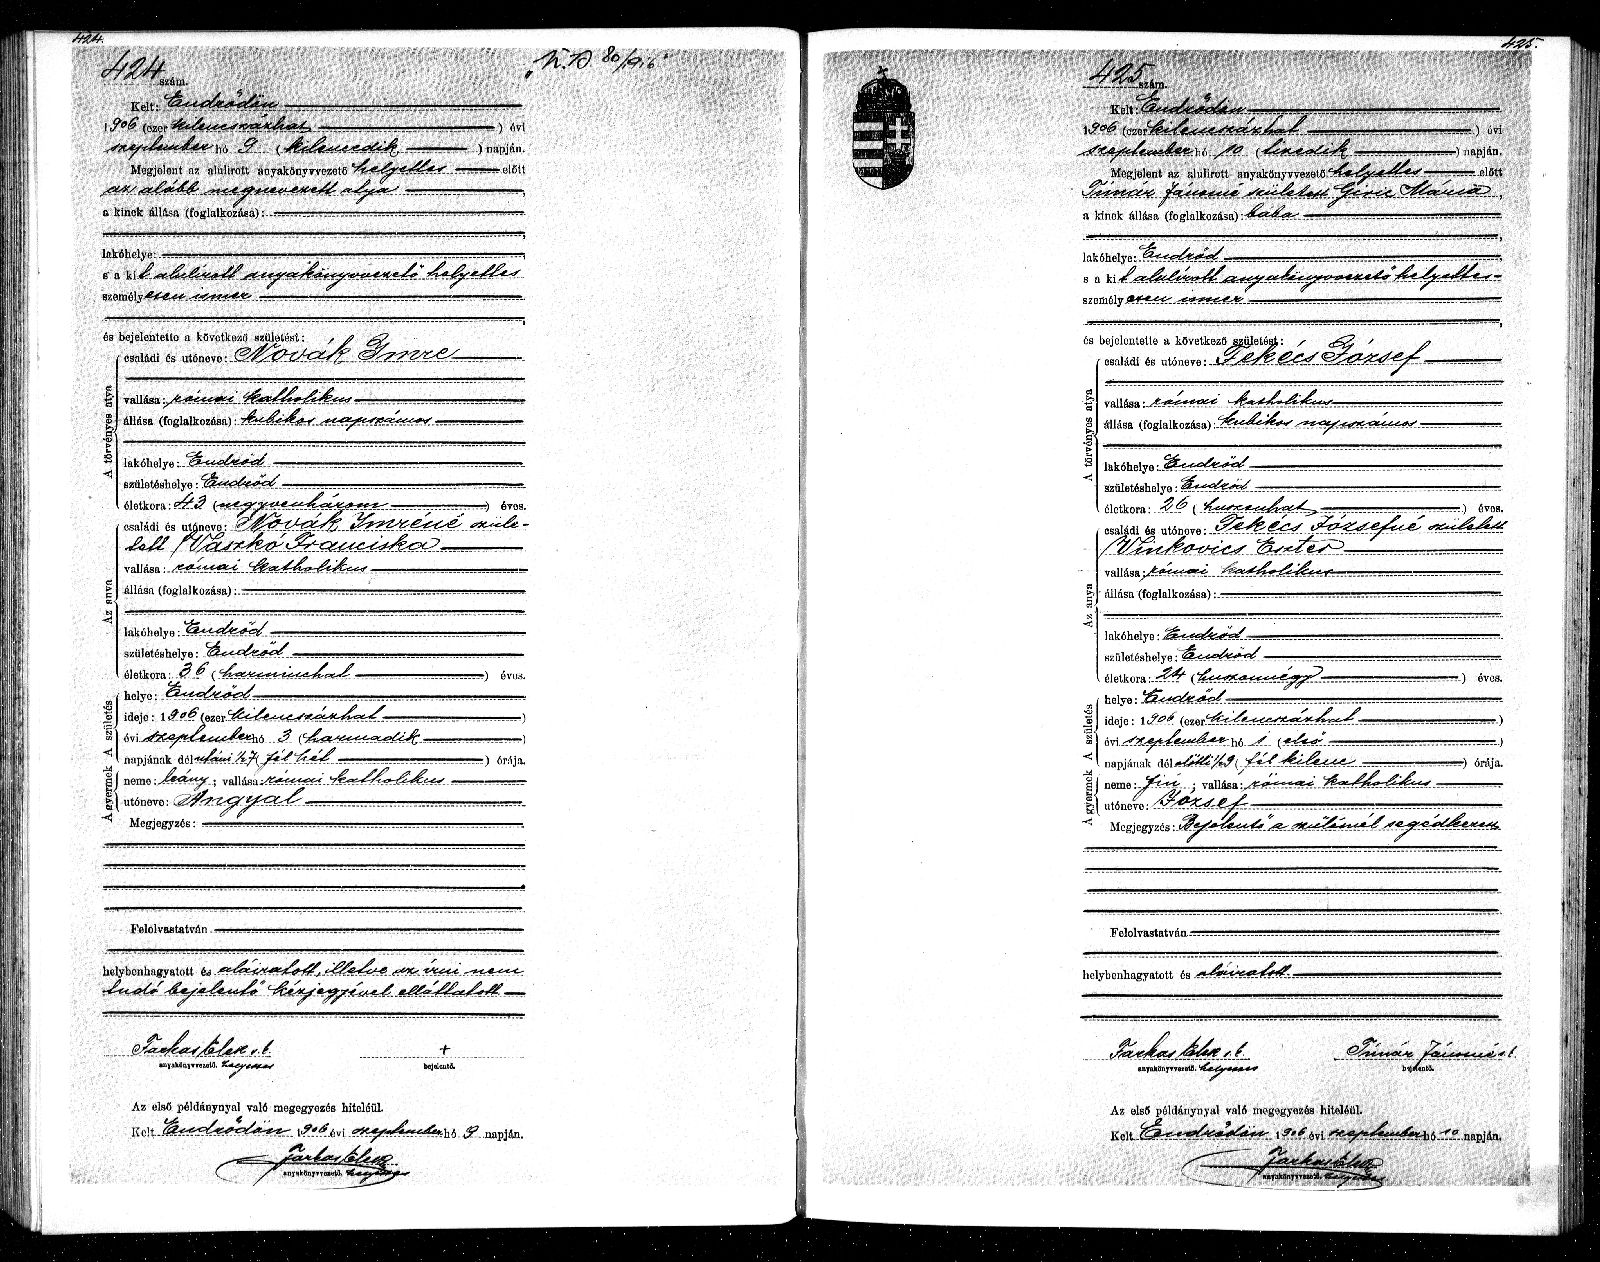 424.
424 szám.
"N.B 80/1916"
Kelt: Endrődön
1906 (ezer kilencszázhat ) évi
szeptember hó 9 (kilencedik ) napján.
Megjelent az alulirott anyakönyvvezető helyettes előtt
az alább megnevezett atya ,
a kinek állása (foglalkozása):
lakóhelye:
s a kit alulirott anyakönyvvezető helyettes
személyesen ismer
és bejelentette a következő születést:
A törvényes atya
családi és utóneve: Novák Imre
vallása: római katholikus
állása (foglalkozása): kubikos napszámos
lakóhelye: Endrőd
születéshelye: Endrőd
életkora: 43 (negyvenhárom ) éves.
Az anya
családi és utóneve: Novák Imréné szüle-
tett Vaszkó Franciska
vallása: római katholikus
állása (foglalkozása):
lakóhelye: Endrőd
születéshelye: Endrőd
életkora: 36 (harminchat ) éves.
A születés
helye: Endrőd
ideje: 1906 (ezer kilencszázhat )
évi szeptember hó 3 (harmadik )
napjának délutáni 1/2 7 (fél hét ) órája.
A gyermek
neme: leány; vallása: római katholikus
utóneve: Angyal
Megjegyzés:
Felolvastatván
helybenhagyatott és aláiratott, illetve az irni nem
tudó bejelentő kézjegyével elláttatott
Farkas Elek s. k. +
anyakönyvvezető. helyettes bejelentő.
Az első példánynyal való megegyezés hiteléül.
Kelt Endrődön 1906 évi szeptember hó 9 napján.
Farkas Elek
anyakönyvvezető. helyettes
425.
425 szám.
Kelt: Endrődön
1906 (ezer kilencszázhat ) évi
szeptember hó 10 (tizedik ) napján.
Megjelent az alulirott anyakönyvvezető helyettes előtt
Timár Jánosné született Mária ,
a kinek állása (foglalkozása): bába
lakóhelye: Endrőd
s a kit alulirott anyakönyvvezető helyettes
személyesen ismer
és bejelentette a következő születést:
A törvényes atya
családi és utóneve: Fekécs József
vallása: római katholikus
állása (foglalkozása): kubikos napszámos
lakóhelye: Endrőd
születéshelye: Endrőd
életkora: 26 (huszonhat ) éves.
Az anya
családi és utóneve: Fekécs Józsefné született
Vinkovics Eszter
vallása: római katholikus
állása (foglalkozása):
lakóhelye: Endrőd
születéshelye: Endrőd
életkora: 24 (huszonnégy ) éves.
A születés
helye: Endrőd
ideje: 1906 (ezer kilencszázhat )
évi szeptember hó 1 (első )
napjának délelőtti 1/2 9 (fél kilenc ) órája.
A gyermek
neme: fiu; vallása: római katholikus
utóneve: József
Megjegyzés: Bejelentő a szülésnél segédkezett
Felolvastatván
helybenhagyatott és aláiratott
Farkas Elek s. k. Timár Jánosné s. k.
anyakönyvvezető. helyettes bejelentő.
Az első példánynyal való megegyezés hiteléül.
Kelt Endrődön 1906 évi szeptember hó 10 napján.
Farkas Elek
anyakönyvvezető. helyettes